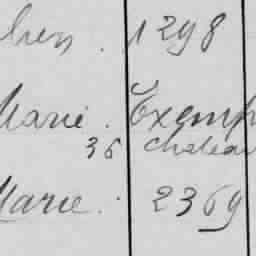 1298
Marie. Exemp
36 Chateau
Marie. 2369